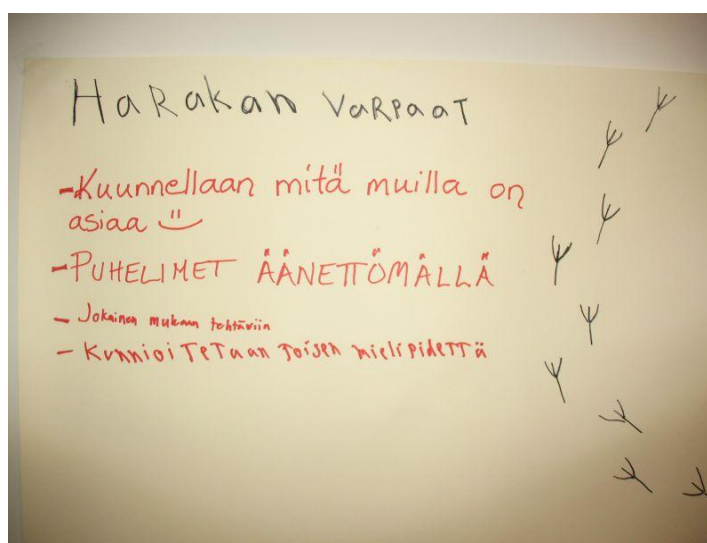 HaRakan VaRPaaT
-Kuunnellaan mitä muilla on
asiaa
-PUHELIMET ÄÄNETTÖMÄLLÄ
- Jokainen mukaan tehtäviin
- KunnioiTeTaan Toisen mielipideTTä